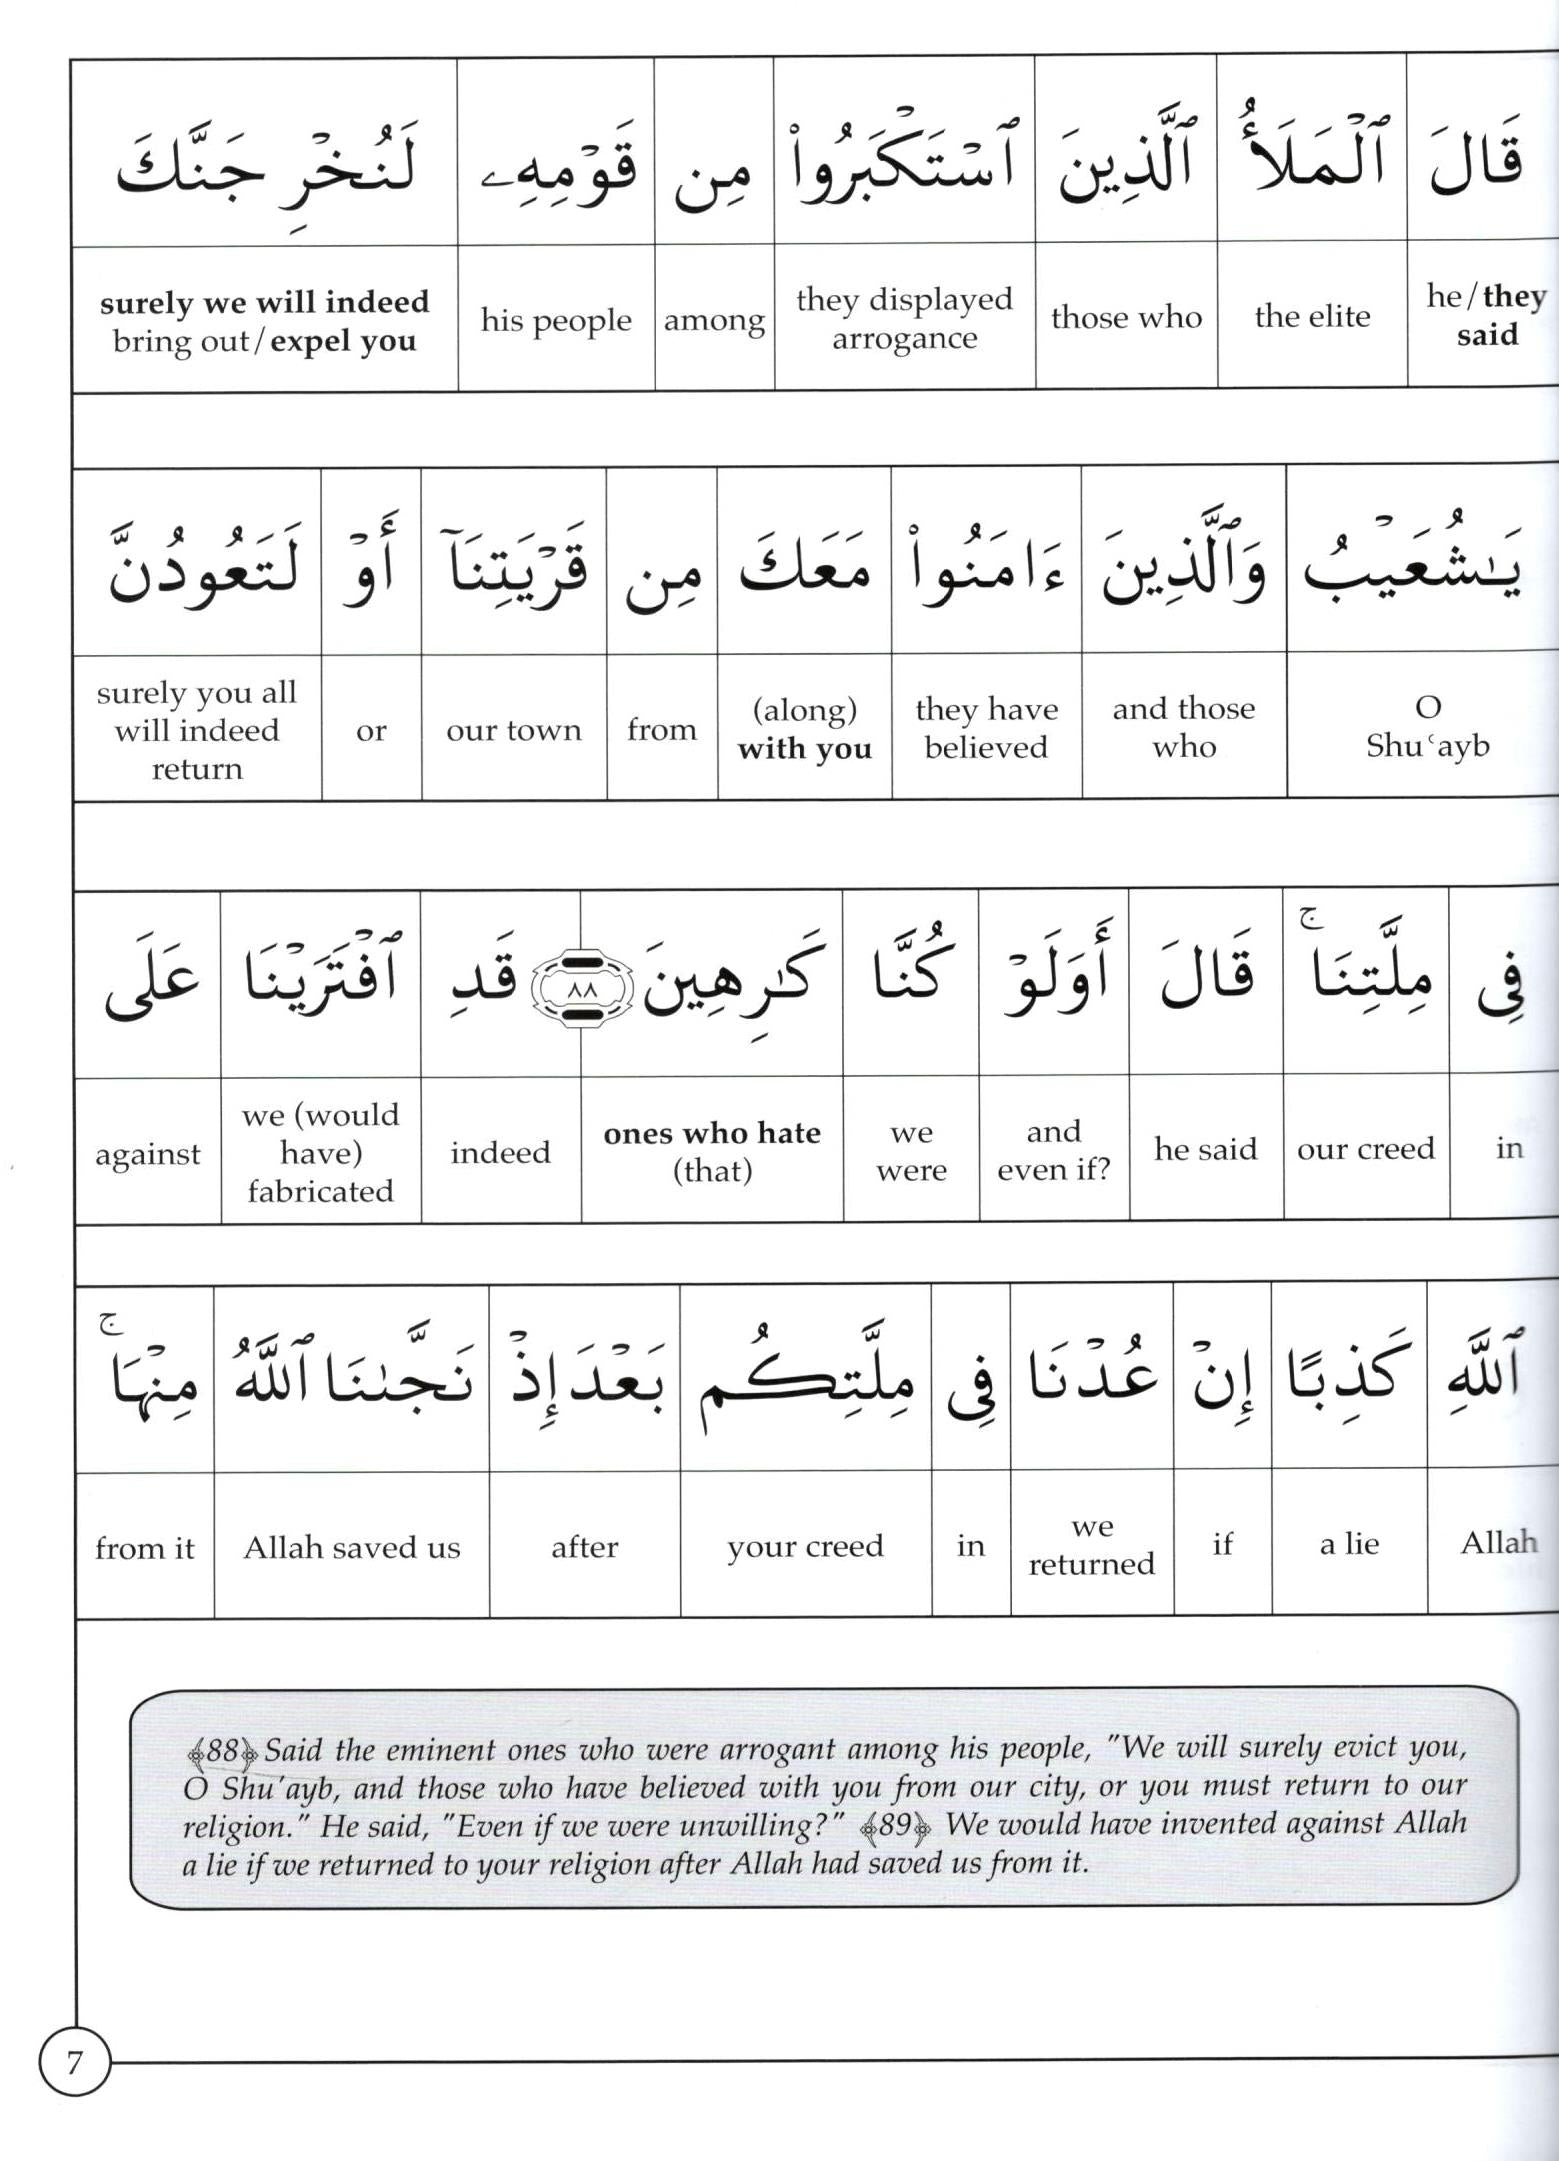 قَالَ ٱلْمَلَأُ ٱلَّذِينَ ٱسْتَكْبَرُوا۟ مِن قَوْمِهِۦ لَنُخْرِجَنَّكَ
he/they said the elite those who they displayed arrogance among his people surely we will indeed bring out/expel you
يَـٰشُعَيْبُ وَٱلَّذِينَ ءَامَنُوا۟ مَعَكَ مِن قَرْيَتِنَآ أَوْ لَتَعُودُنَّ
O Shuʿayb and those who they have believed (along) with you from our town or surely you all will indeed return
فِى مِلَّتِنَا ۚ قَالَ أَوَلَوْ كُنَّا كَـٰرِهِينَ ٨٨ قَدِ ٱفْتَرَيْنَا عَلَى
in our creed he said and even if? we were ones who hate (that) indeed we (would have) fabricated against
ٱللَّهِ كَذِبًا إِنْ عُدْنَا فِى مِلَّتِكُم بَعْدَ إِذْ نَجَّىٰنَا ٱللَّهُ مِنْهَا ۚ
Allah a lie if we returned in your creed after Allah saved us from it
﴾88﴿ Said the eminent ones who were arrogant among his people, "We will surely evict you,
O Shu'ayb, and those who have believed with you from our city, or you must return to our
religion." He said, "Even if we were unwilling?" ﴾89﴿ We would have invented against Allah
a lie if we returned to your religion after Allah had saved us from it.
7